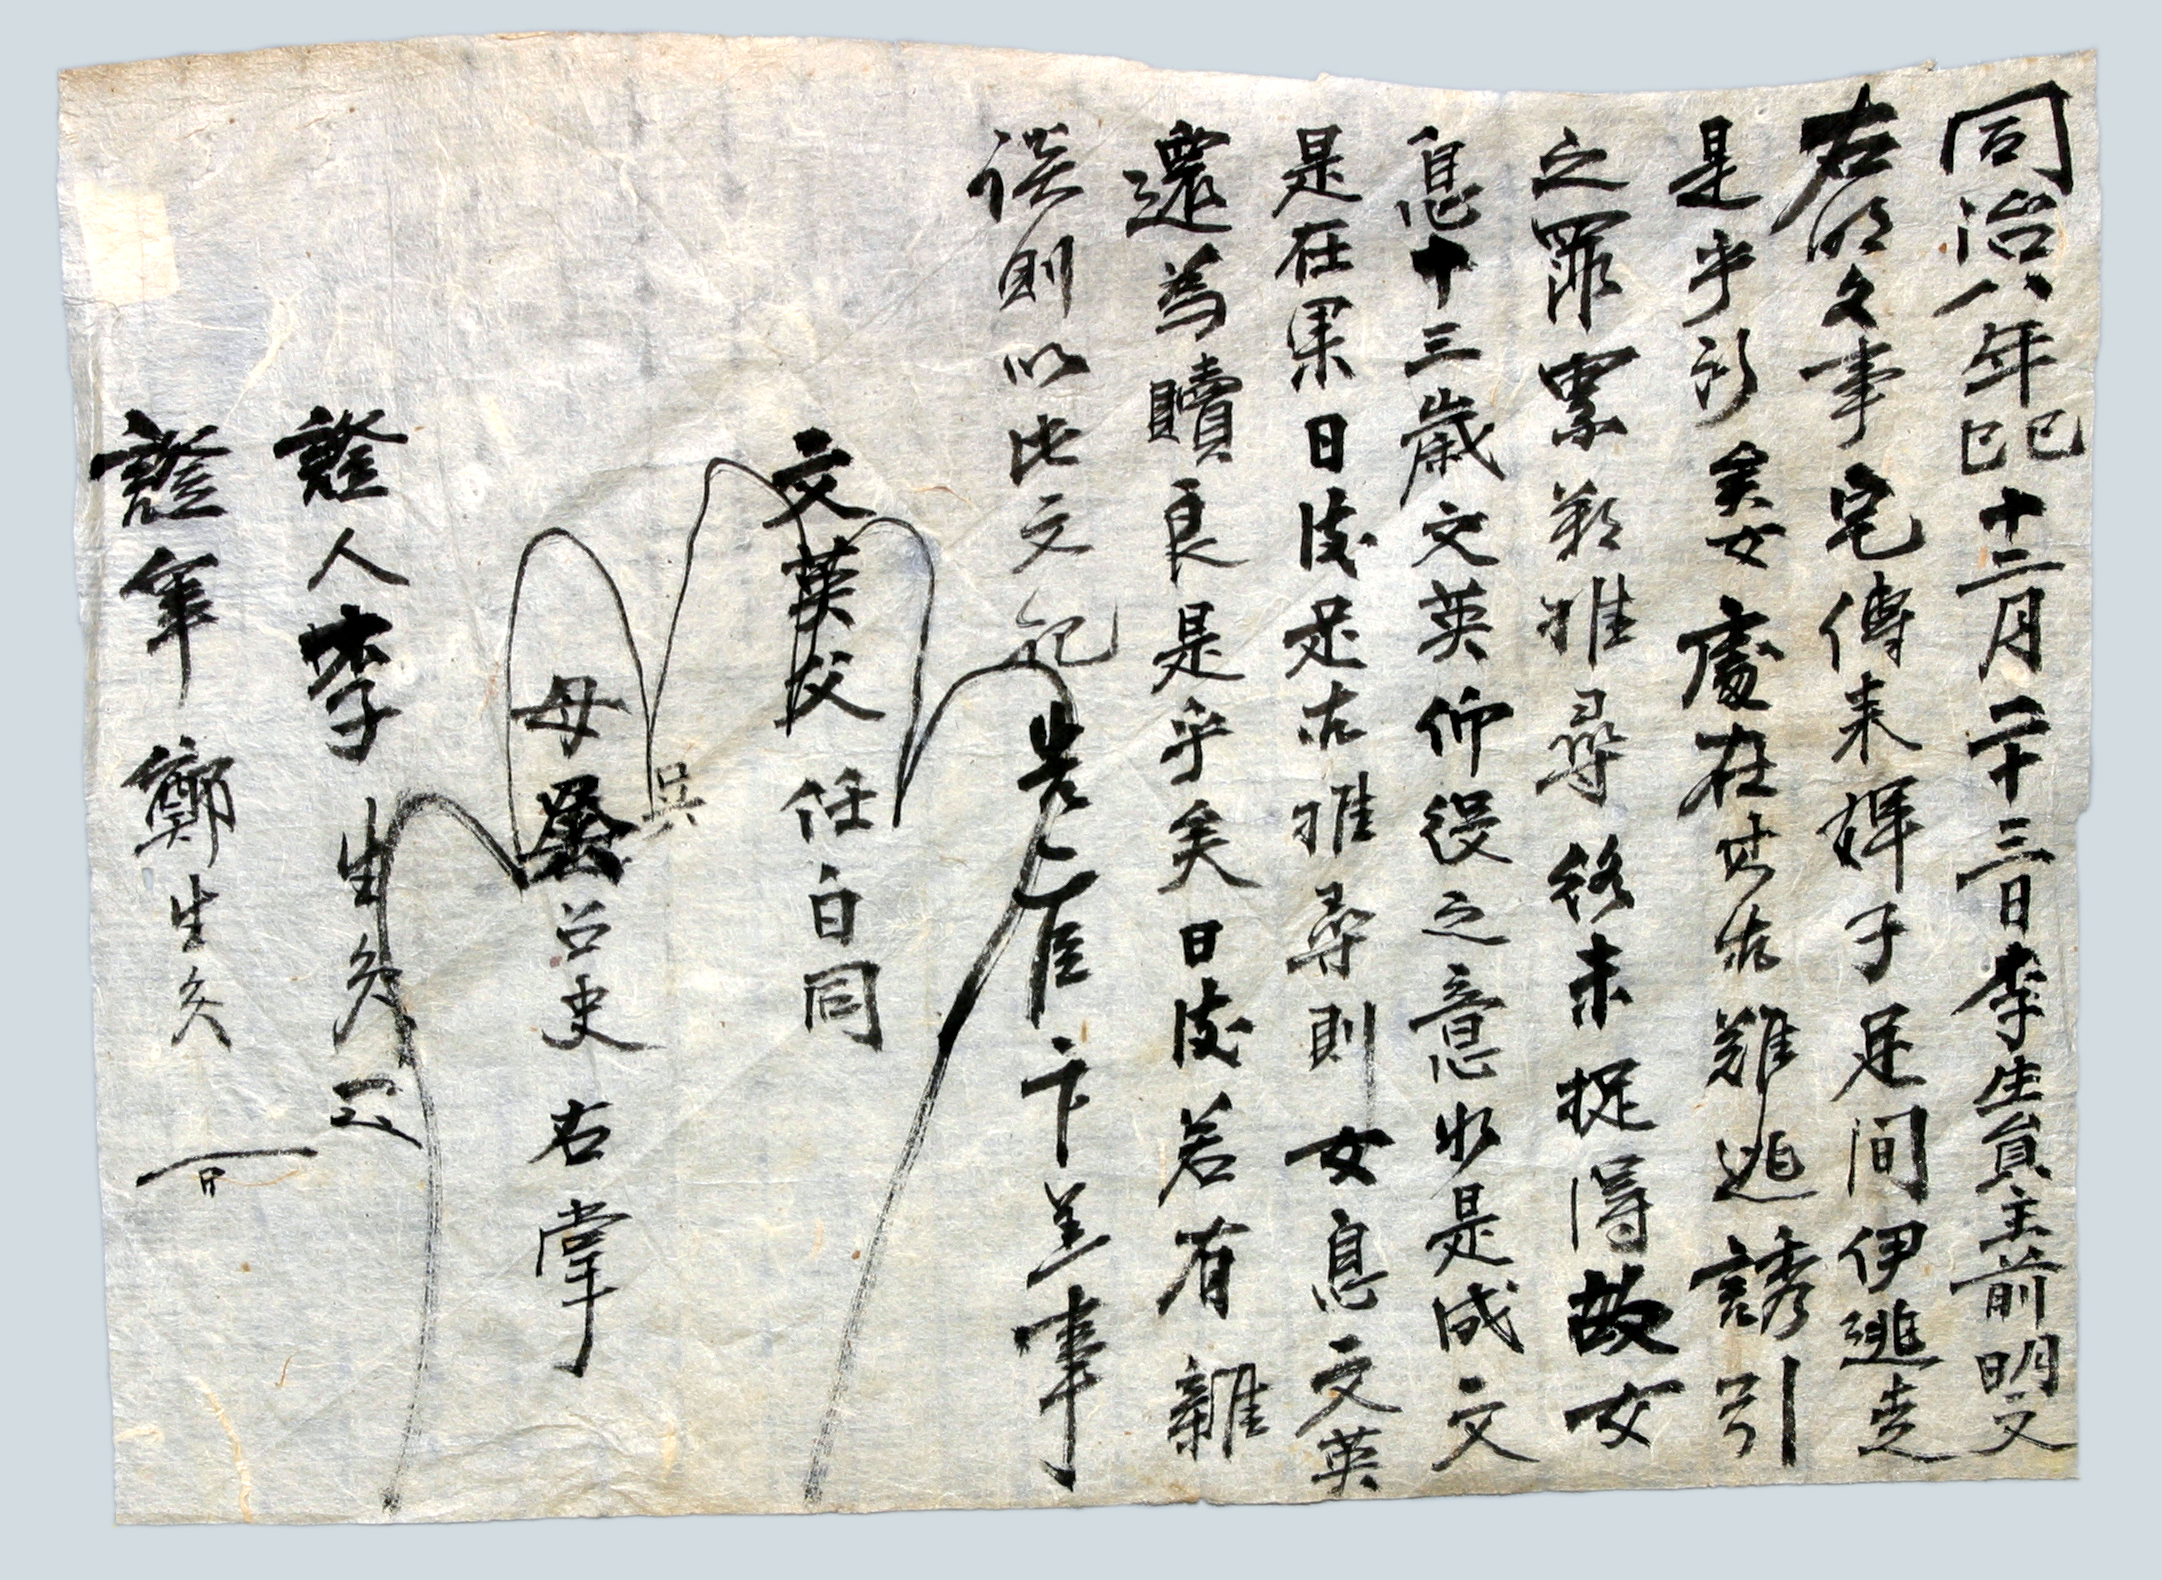 同治八年己巳十二月二十三日李生員主前明文
右明文事宅傳来婢子足間伊逃走
是乎所矣女處在此故難逃誘引
之罪累朔推尋終未捉得故女
息十三歳文英仰役之意如是成文
是在果日後足古推尋則女息文英
還為贖良是乎矣日後若有雜
談則以此文記告官卞正事
文英父任白同
母吳召史右掌
證人李生員
證筆鄭生員